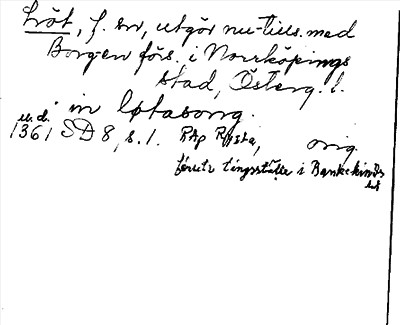 Löt, f. sn, utgör nu-tills. med
Borgen förs. i Norrköpings
stad, Österg. l.
" in Løtasong.
u. d.
1361 SD 8, s. 1. RAp Rysta, orig.
förutv tingsställe i Bankekinds
hd